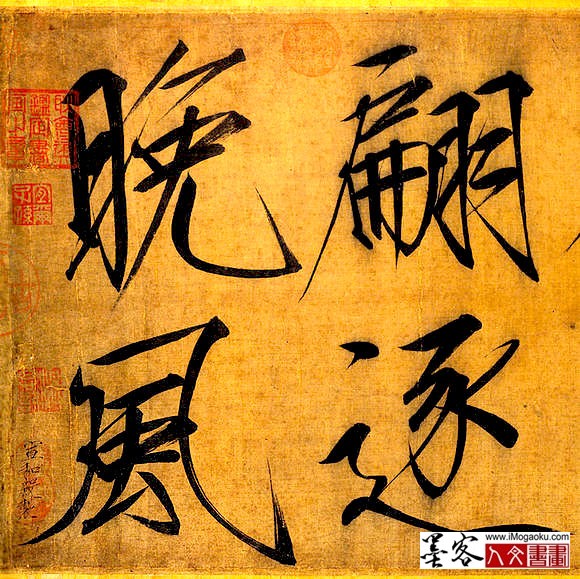 翩逐
晚風
宣和殿製
墨客
www.iMogaoku.com
人文書畫